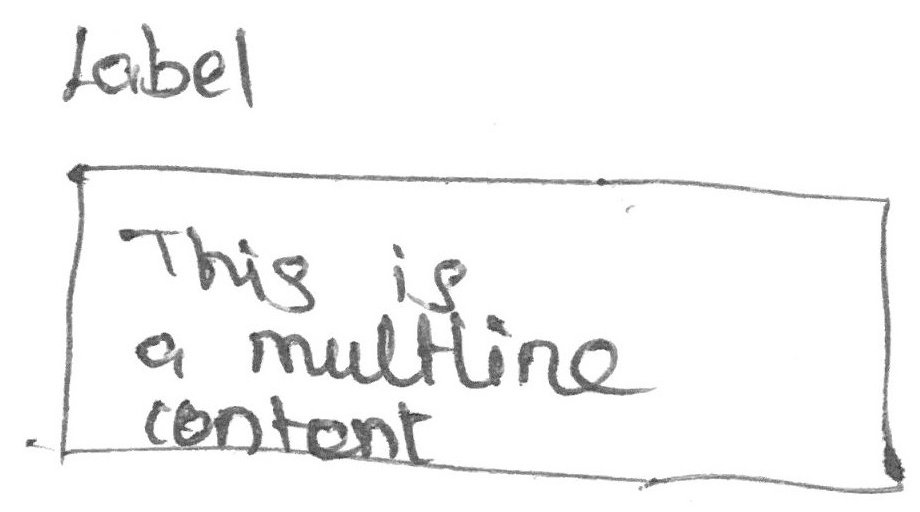 Label
This is
a multline
content